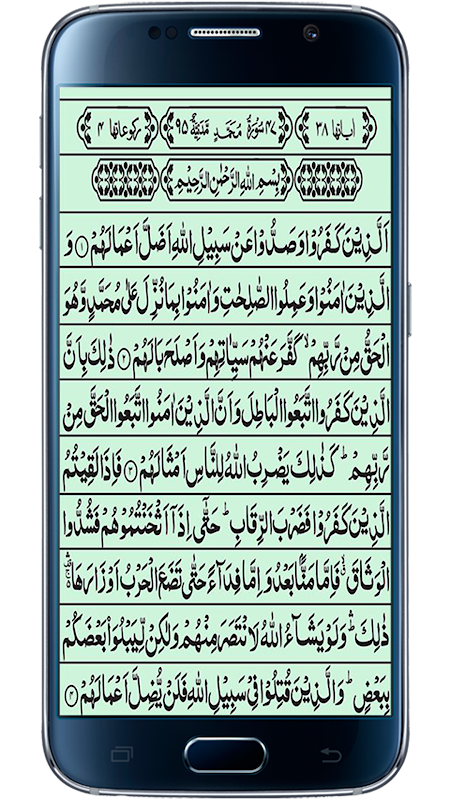 اٰیاتها ۳۸ ۴۷ سُوْرَةُ مُحَمَّدٍ مَّدَنِیَّةٌ ۹۵ رکوعاتها ۴
بِسْمِ اللهِ الرَّحْمٰنِ الرَّحِیْمِ
اَلَّذِیْنَ كَفَرُوْا وَصَدُّوْا عَنْ سَبِیْلِ اللهِ اَضَلَّ اَعْمَالَهُمْ ۝۱ وَ
الَّذِیْنَ اٰمَنُوْا وَعَمِلُوا الصّٰلِحٰتِ وَاٰمَنُوْا بِمَا نُزِّلَ عَلٰى مُحَمَّدٍ وَّهُوَ
الْحَقُّ مِنْ رَّبِّهِمْ ۙ كَفَّرَ عَنْهُمْ سَیِّاٰتِهِمْ وَاَصْلَحَ بَالَهُمْ ۝۲ ذٰلِكَ بِاَنَّ
الَّذِیْنَ كَفَرُوا اتَّبَعُوا الْبَاطِلَ وَاَنَّ الَّذِیْنَ اٰمَنُوا اتَّبَعُوا الْحَقَّ مِنْ
رَّبِّهِمْ ؕ كَذٰلِكَ یَضْرِبُ اللهُ لِلنَّاسِ اَمْثَالَهُمْ ۝۳ فَاِذَا لَقِیْتُمُ
الَّذِیْنَ كَفَرُوْا فَضَرْبَ الرِّقَابِ ؕ حَتّٰۤى اِذَاۤ اَثْخَنْتُمُوْهُمْ فَشُدُّوا
الْوَثَاقَ ۙ فَاِمَّا مَنًّۢا بَعْدُ وَاِمَّا فِدَآءً حَتّٰى تَضَعَ الْحَرْبُ اَوْزَارَهَا ۛ۫ۚ
ذٰلِكَ ۛؕ وَلَوْ یَشَآءُ اللهُ لَانْتَصَرَ مِنْهُمْ وَلٰكِنْ لِّیَبْلُوَا۟ بَعْضَكُمْ
بِبَعْضٍ ؕ وَالَّذِیْنَ قُتِلُوْا فِیْ سَبِیْلِ اللهِ فَلَنْ یُّضِلَّ اَعْمَالَهُمْ ۝۴